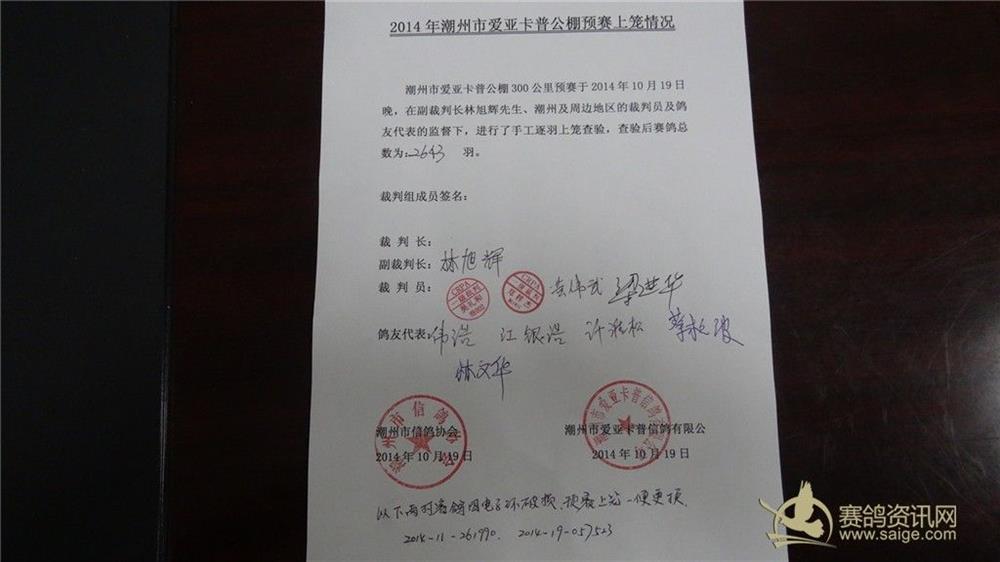 2014年潮州市爱亚卡普公棚预赛上笼情况
潮州市爱亚卡普公棚300公里预赛于2014年10月19日
晚，在副裁判长林旭辉先生、潮州及周边地区的裁判员及鸽
友代表的监督下，进行了手工逐羽上笼查验，查验后赛鸽总
数为：2643 羽。
裁判组成员签名：
裁 判 长：
副裁判长：林旭辉
裁 判 员： 梁世华
鸽友代表：伟浩 江银浩 许 松
林文华
潮州市信鸽协会
潮州市爱亚卡普信鸽有限公
2014年10月19日
2014年10月19日
以下两羽赛鸽因电子环破损，预赛上笼一便更换.
2014-11-261990. 2014-19-057523
赛鸽资讯网
www.saige.com